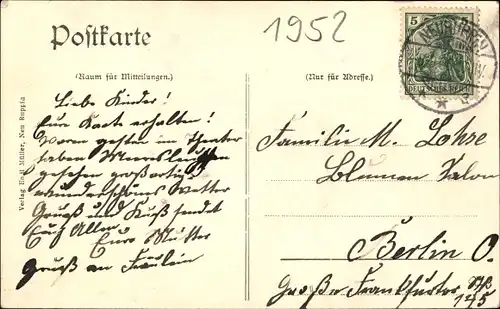 1952
Postkarte
(Raum für Mitteilungen.)
(Nur für Adresse.)
5 5
DEUTSCHES REICH
NEURUPPIN
Verlag Emil Müller, Neu Ruppin
Liebe Kinder!
Eure Karte erhalten!
Waren gestern im Theater
haben
gesehen großartig
wunderschönes Wetter
Gruß und Kuß sendet
Euch Allen
Eure Mutter
Gruß an Fräulein
Familie M. Lohre
Blumen Salon
Berlin O.
Große Frankfurter Str
145